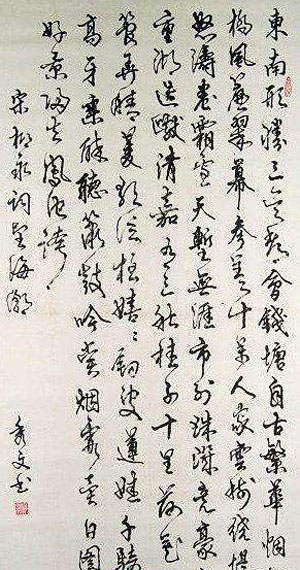 東南形勝三吳都會錢塘自古繁華烟
橋風簾翠幕參差十萬人家雲樹繞堤
怒濤卷霜雪天塹無涯市列珠璣競豪
重湖疊巘清嘉有三秋桂子十里荷花
管弄晴菱歌泛夜嬉嬉釣叟蓮娃千騎
高牙乘醉聽簫鼓吟賞烟霞異日圖
好景歸去鳳池誇
宋柳永詞望海潮
秀文書